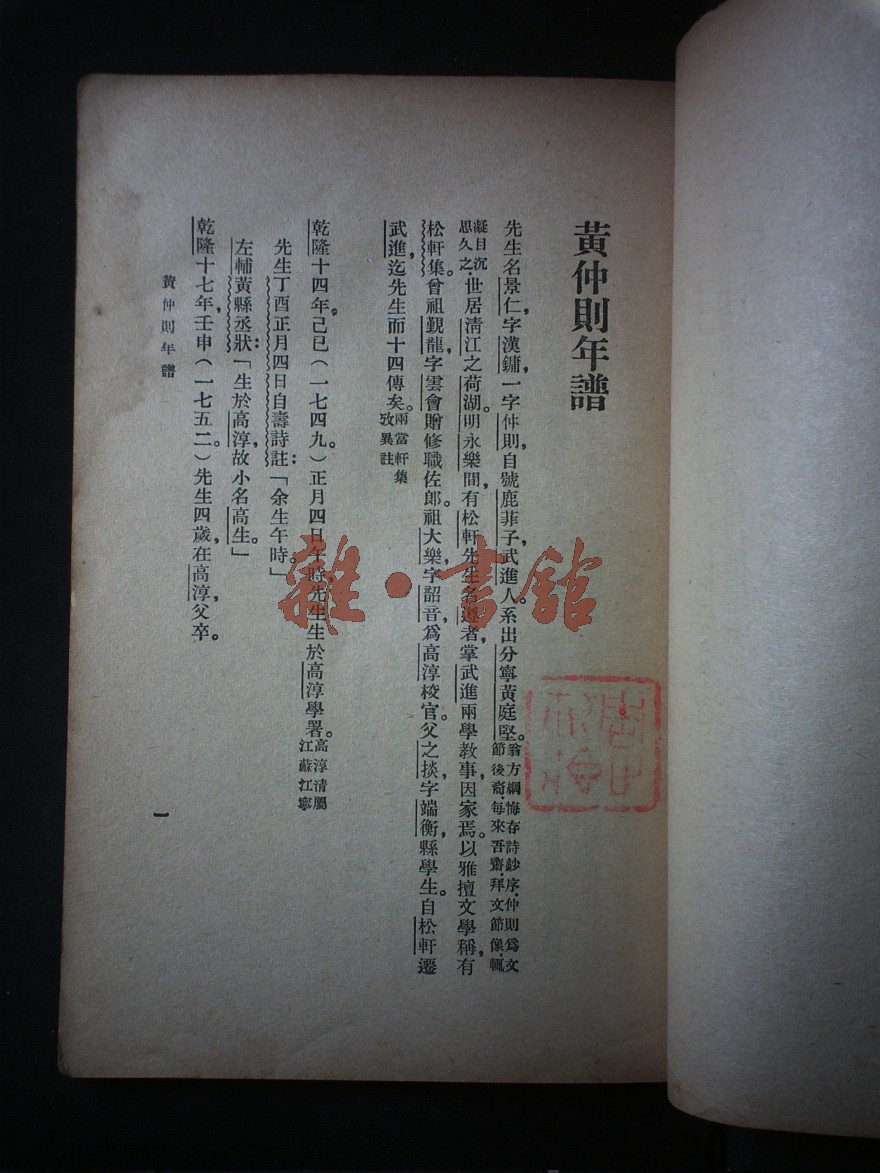 黃仲則年譜
先生名景仁，字漢鏞，一字仲則，自號鹿菲子，武進人。系出分寧黃庭堅。翁方綱悔存詩鈔序，仲則爲文節後裔，每來吾齋，拜文節像，輒
凝目沉思久之。世居淸江之荷湖。明永樂間，有松軒先生名遵者，掌武進兩學敎事，因家焉。以雅擅文學稱，有
松軒集。曾祖覲龍，字雲會，贈修職佐郎。祖大樂，字韶音，爲高淳校官。父之掞，字端衡，縣學生。自松軒遷
武進，迄先生而十四傳矣。兩當軒集攷異註
乾隆十四年己巳（一七四九）。正月四日午時，先生生於高淳學署。高淳淸屬江蘇江寧
先生丁酉正月四日自壽詩註：「余生午時。」
左輔黃縣丞狀：「生於高淳，故小名高生。」
乾隆十七年壬申（一七五二）。先生四歲，在高淳，父卒。
黃仲則年譜
一
雜·書館